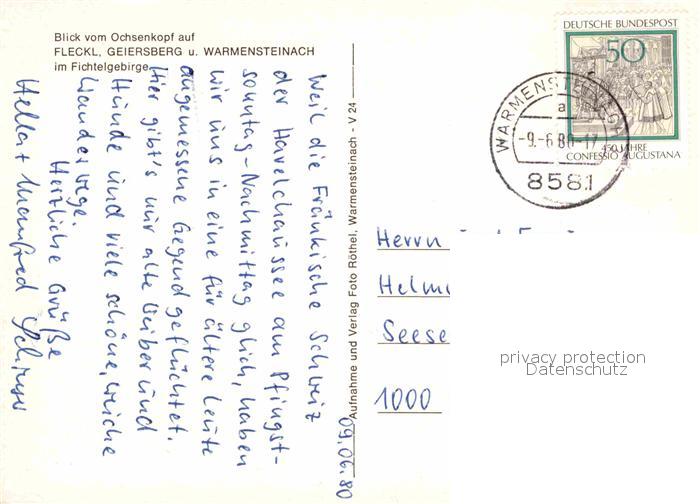 Blick vom Ochsenkopf auf
FLECKL, GEIERSBERG u. WARMENSTEINACH
im Fichtelgebirge
Weil die Fränkische Schweiz
der Havelchaussee am Pfingst-
sonntag-Nachmittag glich, haben
wir uns in eine für ältere Leute
angemessene Gegend geflüchtet.
Hier gibt's nur alte Weiber und
Hunde und viele schöne, weiche
Wanderwege.
Herzliche Grüße
Hella + Manfred
09.06.80
Aufnahme und Verlag Foto Röthel, Warmensteinach - V 24
DEUTSCHE BUNDESPOST
50
450 JAHRE
CONFESSIO AUGUSTANA
WARMENSTEINACH
a
-9.-6.80-17
8581
Herrn
Helm
Seese
1000
privacy protection
Datenschutz